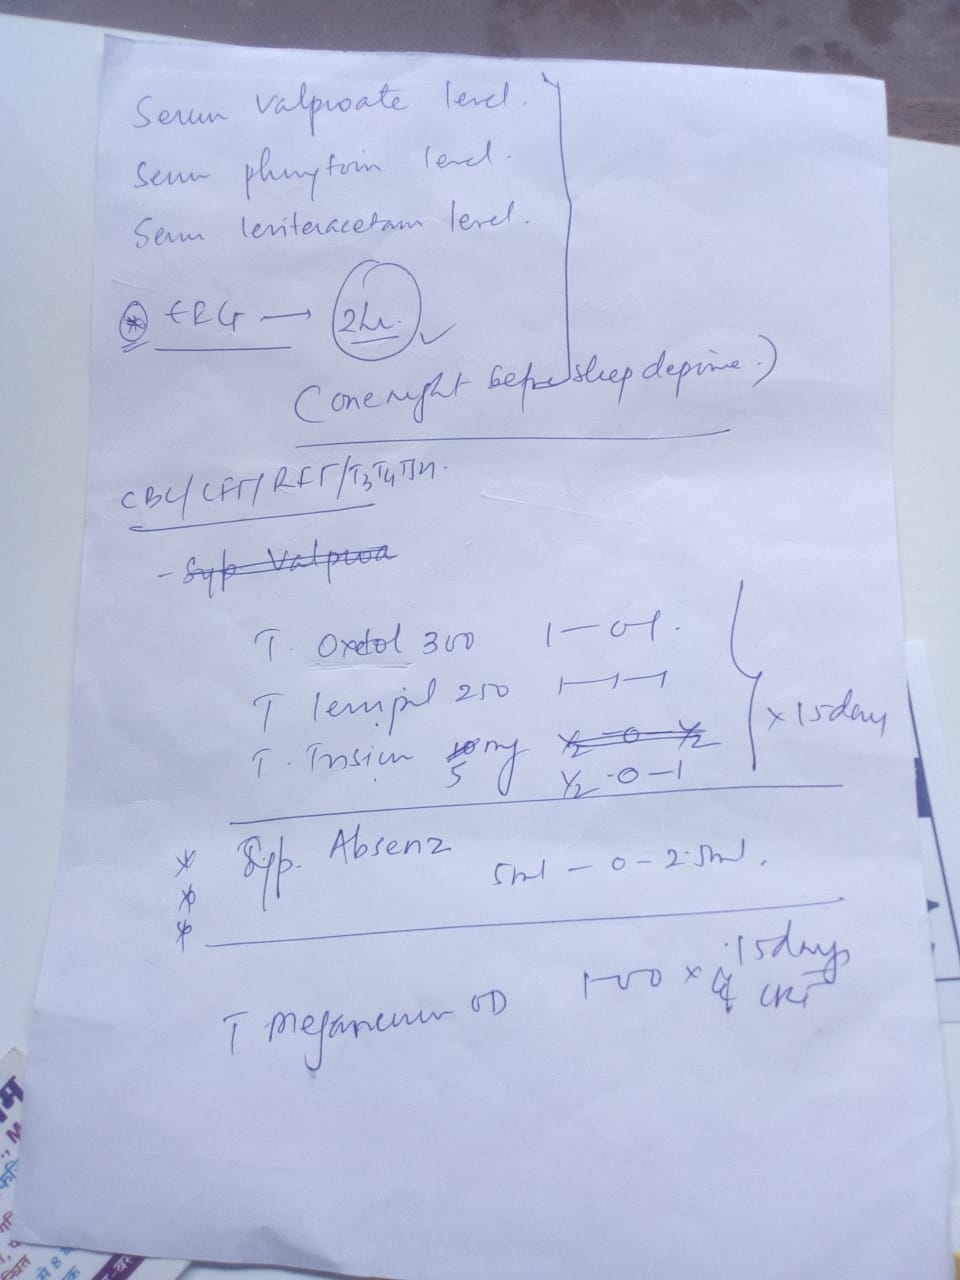 Serum valproate level.
Serum phenytoin level.
Serum leviteracetam level.
EEG → 2hr.
(one night before sleep deprive.)
CBC/LFT/RFT/T3T4TSH.
- Syp Valproa
T. Oxetol 300 1-0-1.
T Levipil 250 1-1-1
T. 10 mg ½-0-½
5 ½-0-1
x 15day
Syp. Absenz 5ml - 0 - 2.5ml.
T Meganeuron OD 1-0-0 x 15days